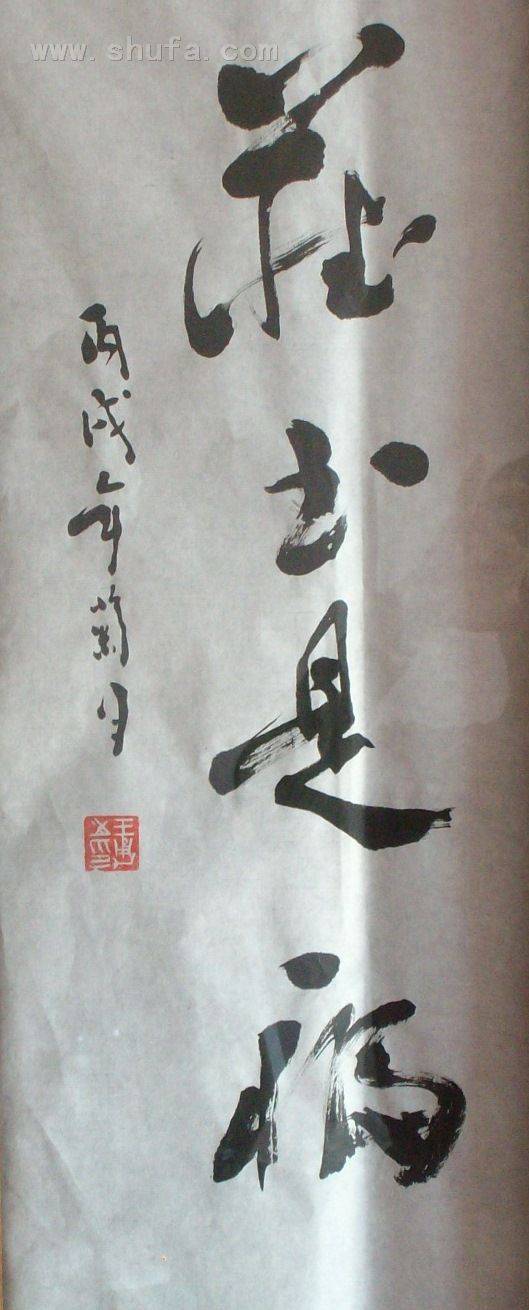 www.shufa.com
藏书是福
丙戌年菊月